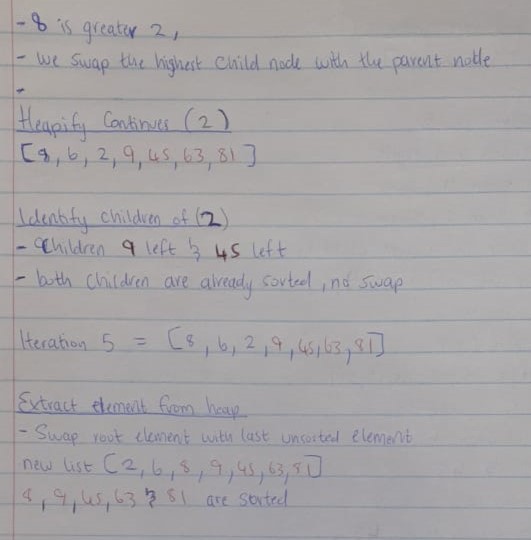 - 8 is greater 2,
- we swap the highest child node with the parent node
-
Heapify Continues (2)
[8, 6, 2, 9, 45, 63, 81]
Identify children of (2)
- Children 9 left & 45 left
- both children are already sorted, no swap
Iteration 5 = [8, 6, 2, 9, 45, 63, 81]
Extract element from heap
- Swap root element with last unsorted element
new list [2, 6, 8, 9, 45, 63, 81]
8, 9, 45, 63 & 81 are sorted